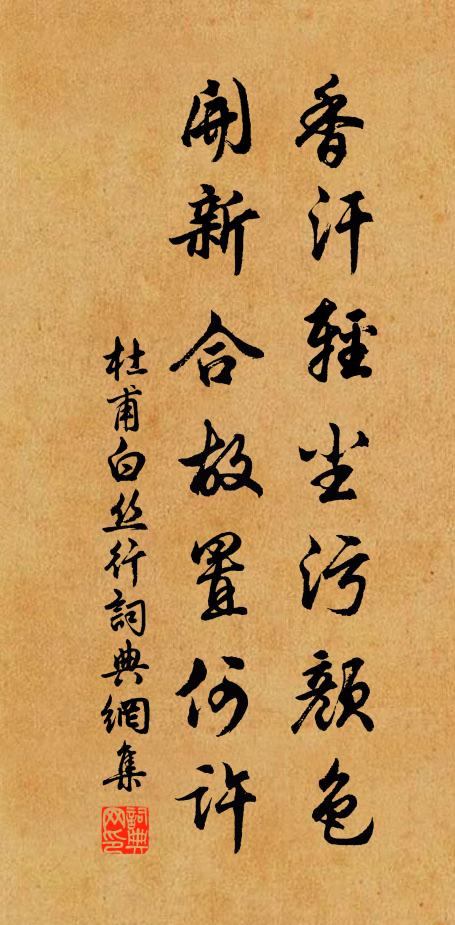 香汗輕尘污顏色
開新合故置何許
杜甫白丝行詞典網集
詞典网印